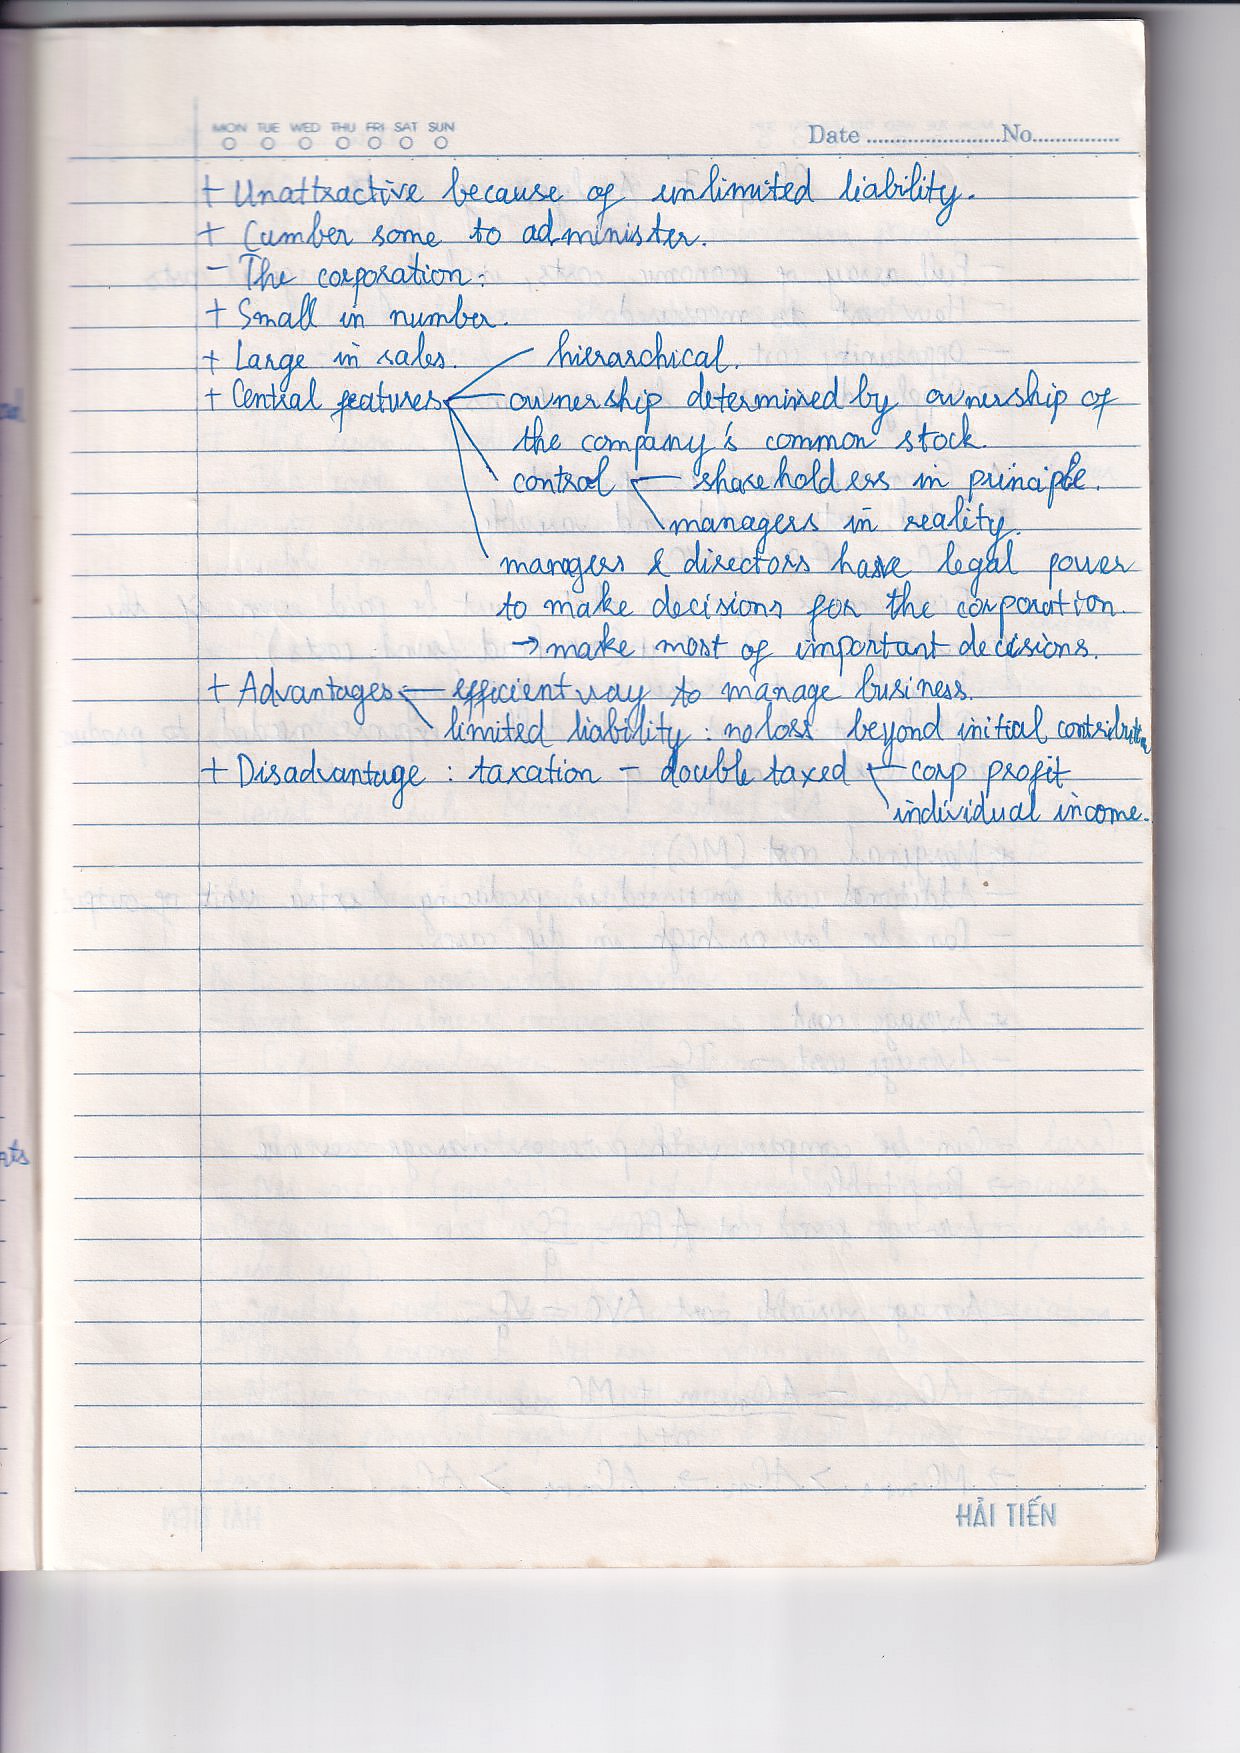 MON TUE WED THU FRI SAT SUN
Date ........................No................
+ Unattractive because of unlimited liability.
+ Cumber some to administer.
- The corporation:
+ Small in number.
+ Large in sales. hierarchical.
+ Central features ownership determined by ownership of
the company's common stock.
control shareholders in principle.
managers in reality.
managers & directors have legal power
to make decisions for the corporation.
→ make most of important decisions.
+ Advantages efficient way to manage business.
limited liability : no loss beyond initial contribution
+ Disadvantage : taxation - double taxed corp profit
individual income.
HẢI TIẾN